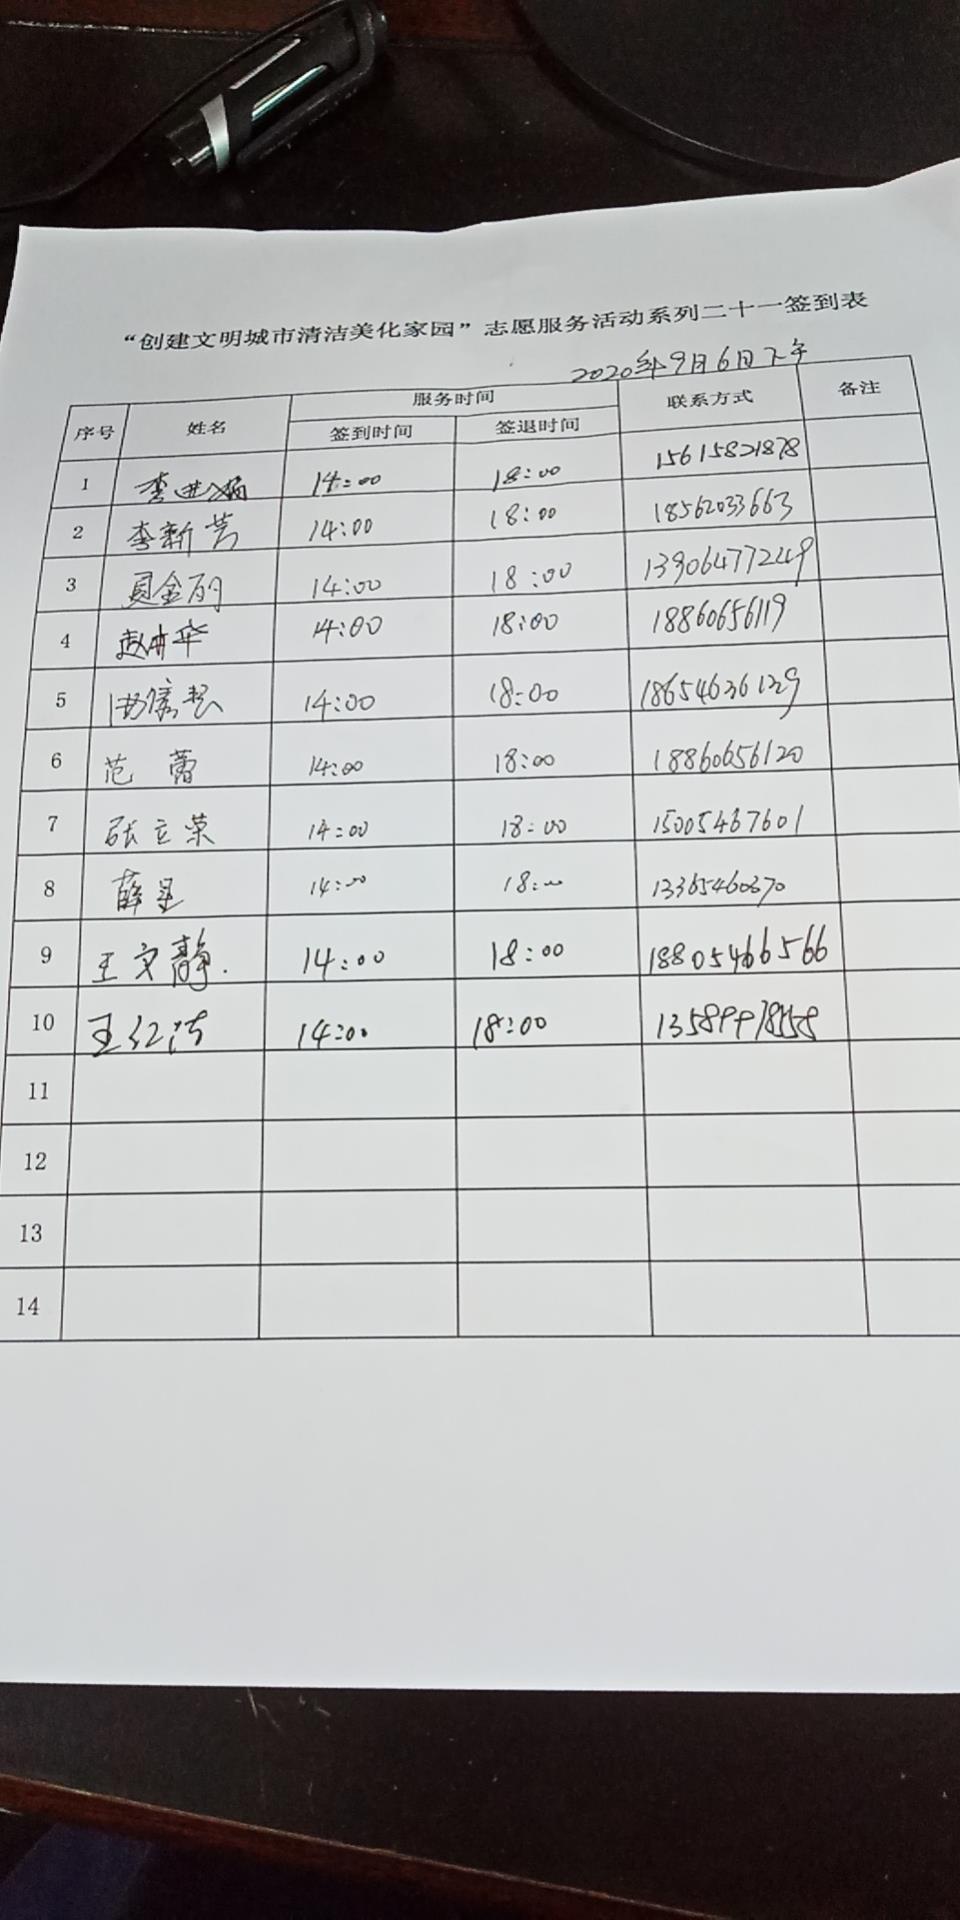 “创建文明城市清洁美化家园”志愿服务活动系列二十一签到表
2020年9月6日下午
序号 姓名 服务时间 联系方式 备注
签到时间 签退时间
1 李进 14:00 18:00 15615821878
2 李新芳 14:00 18:00 18562033663
3 员金丽 14:00 18:00 13906477249
4 赵冉华 14:00 18:00 18860656119
5 14:00 18:00 18654636129
6 范蕾 14:00 18:00 18860656120
7 张立荣 14:00 18:00 15005467601
8 薛星 14:00 18:00 13365460370
9 王文静. 14:00 18:00 18805466566
10 王红涛 14:00 18:00
11
12
13
14